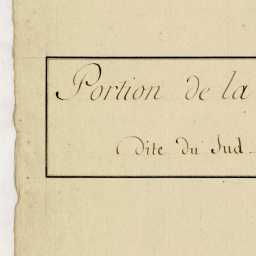 Portion de la
Dite du Sud